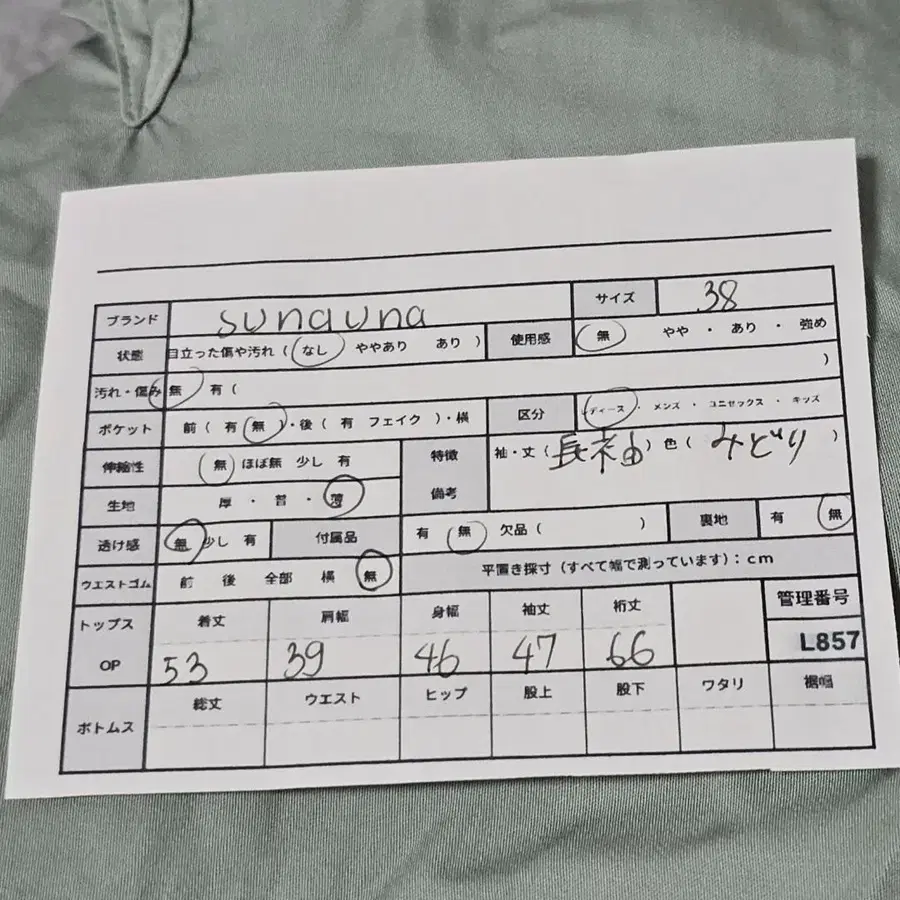 ブランド sunauna サイズ 38
状態 目立った傷や汚れ ( なし ややあり あり ) 使用感 無 やや ・ あり ・ 強め
汚れ・傷み 無 有 ( )
ポケット 前 ( 有 無 )・後 ( 有 フェイク )・横 区分 ディース・ メンズ ・ ユニセックス ・ キッズ
伸縮性 無 ほぼ無 少し 有 特徴 備考 袖・丈 ( 長袖 ) 色 ( みどり )
生地 厚 ・ 普 ・ 薄
透け感 無 少し 有 付属品 有 無 欠品 ( ) 裏地 有 無
ウエストゴム 前 後 全部 横 無 平置き採寸 (すべて幅で測っています) : cm
トップス OP 着丈 肩幅 身幅 袖丈 裄丈 管理番号
53 39 46 47 66 L857
ボトムス 総丈 ウエスト ヒップ 股上 股下 ワタリ 裾幅